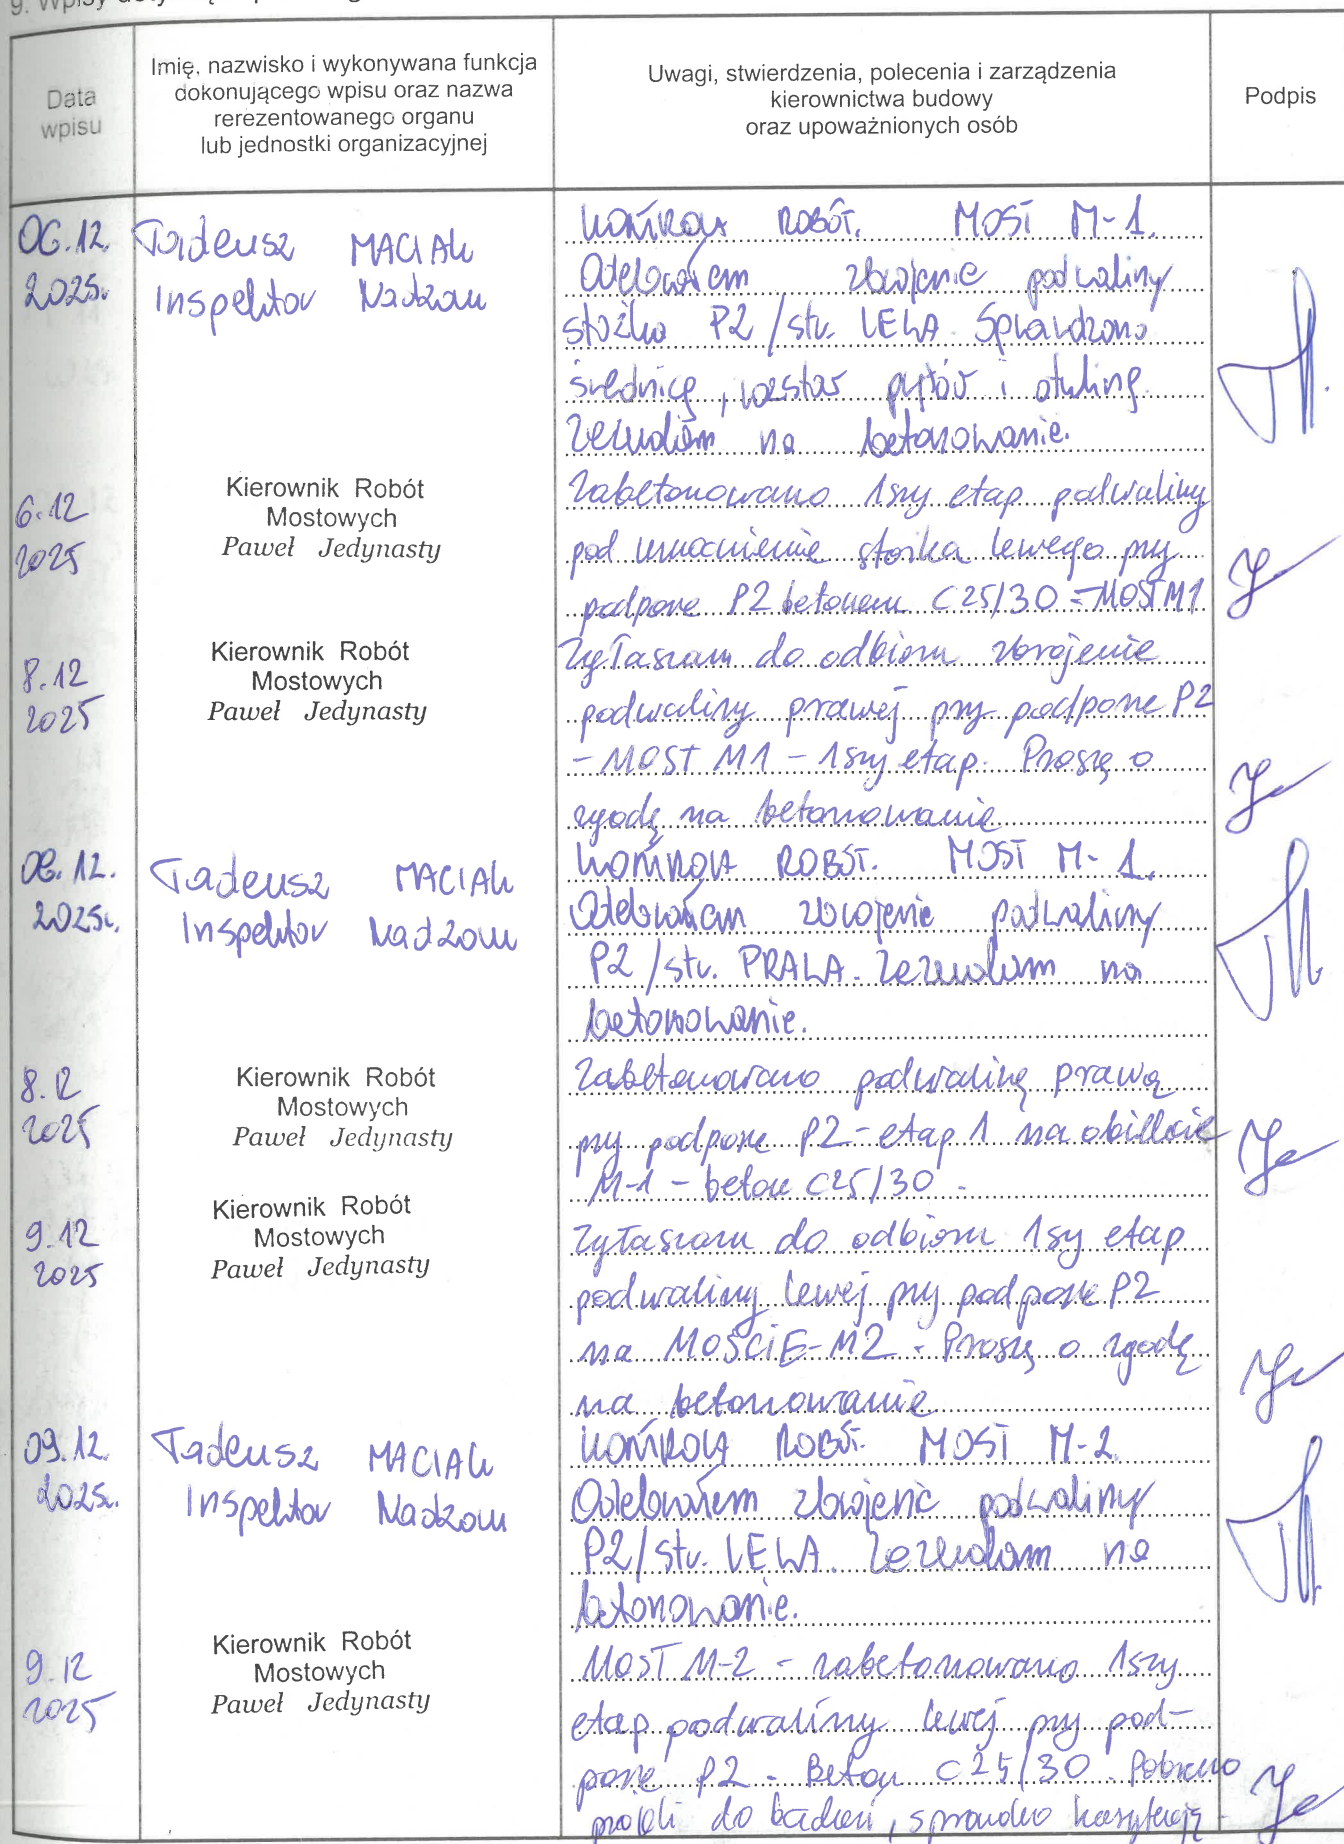 9. Wpisy
Data
wpisu
Imię, nazwisko i wykonywana funkcja
dokonującego wpisu oraz nazwa
rerezentowanego organu
lub jednostki organizacyjnej
Uwagi, stwierdzenia, polecenia i zarządzenia
kierownictwa budowy
oraz upoważnionych osób
Podpis
06.12.
2025r.
Tadeusz MACIAK
Inspektor Nadzoru
KONTROLA ROBÓT. MOST M-1.
Odebrałem zbrojenie podwaliny
stożka P2/str. LEWA. Sprawdzono
średnicę, rozstaw prętów i otulinę
Zezwalam na betonowanie.
6.12
2025
Kierownik Robót
Mostowych
Paweł Jedynasty
Zabetonowano 1szy etap podwaliny
pod umocnienie stożka lewego przy
podporze P2 betonem C25/30 - MOST M1
8.12
2025
Kierownik Robót
Mostowych
Paweł Jedynasty
Zgłaszam do odbioru zbrojenie
podwaliny prawej przy podporze P2
- MOST M1 - 1szy etap. Proszę o
zgodę na betonowanie
08.12.
2025r.
Tadeusz MACIAK
Inspektor Nadzoru
KONTROLA ROBÓT. MOST M-1.
Odebrałem zbrojenie podwaliny
P2/str. PRAWA. Zezwalam na
betonowanie.
8.12
2025
Kierownik Robót
Mostowych
Paweł Jedynasty
Zabetonowano podwalinę prawą
przy podporze P2 - etap 1 na obiekcie
M-1 - beton C25/30.
9.12
2025
Kierownik Robót
Mostowych
Paweł Jedynasty
Zgłaszam do odbioru 1szy etap
podwaliny lewej przy podporze P2
na MOŚCIE-M2. Proszę o zgodę
na betonowanie
09.12.
2025r.
Tadeusz MACIAK
Inspektor Nadzoru
KONTROLA ROBÓT. MOST M-2.
Odebrałem zbrojenie podwaliny
P2/str. LEWA. Zezwalam na
betonowanie.
9.12
2025
Kierownik Robót
Mostowych
Paweł Jedynasty
MOST M-2 - zabetonowano 1szy
etap podwaliny lewej przy pod-
porze P2 - Beton C25/30. Pobrano
próbki do badań, sprawdzo